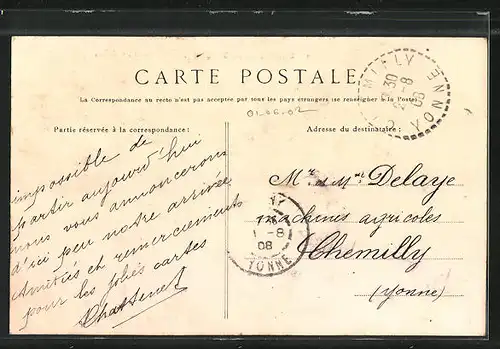 CARTE POSTALE
La Correspondance au recto n'est pas acceptée par tous les pays étrangers (se renseigner à la Poste)
01.06.02
Partie réservée à la correspondance :
Adresse du destinataire :
impossible de
partir aujourd'hui
nous vous annoncerons
d'ici peu notre arrivée
Amitiés et remerciements
pour les jolies cartes
M.r et M.me Delaye
machines agricoles
Chemilly
(Yonne)
30
-8
08
YONNE
-8
08
YONNE